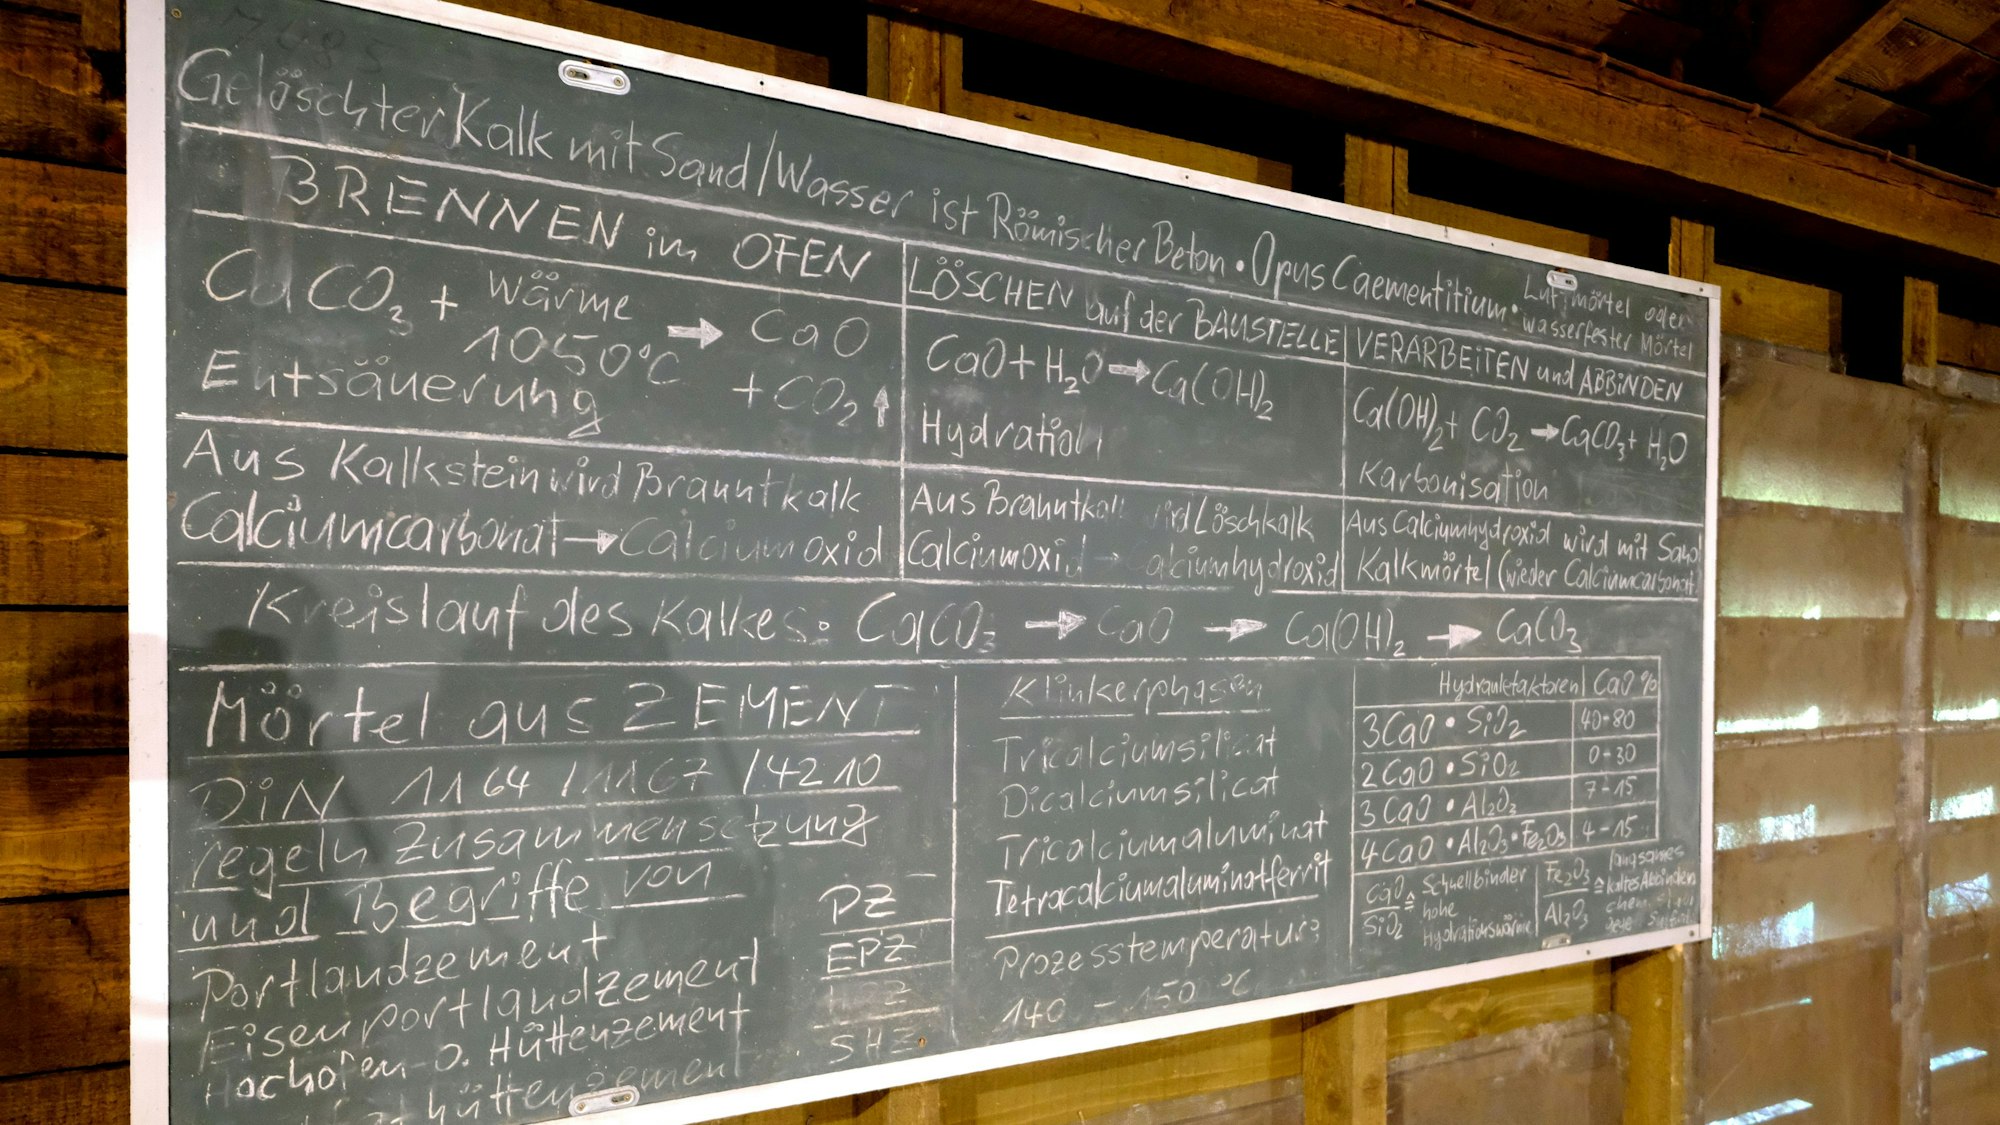 Gelöschter Kalk mit Sand/Wasser ist Römischer Beton • Opus Caementitium •
Luftmörtel oder
wasserfester Mörtel
BRENNEN im OFEN
CaCO₃ + Wärme
1050°C → CaO
Entsäuerung + CO₂ ↑
Aus Kalkstein wird Branntkalk
Calciumcarbonat → Calciumoxid
LÖSCHEN auf der BAUSTELLE
CaO + H₂O → Ca(OH)₂
Hydration
Aus Branntkalk wird Löschkalk
Calciumoxid → Calciumhydroxid
VERARBEITEN und ABBINDEN
Ca(OH)₂ + CO₂ → CaCO₃ + H₂O
Karbonisation
Aus Calciumhydroxid wird mit Sand
Kalkmörtel (wieder Calciumcarbonat)
Kreislauf des Kalkes: CaCO₃ → CaO → Ca(OH)₂ → CaCO₃
Mörtel aus ZEMENT
DIN 1164 / 1167 / 4210
regeln Zusammensetzung
und Begriffe von
Portlandzement PZ
Eisenportlandzement EPZ
Hochofen- o. Hüttenzement
hüttenzement SHZ
Klinkerphasen
Tricalciumsilicat
Dicalciumsilicat
Tricalciumaluminat
Tetracalciumaluminatferrit
Prozesstemperatur:
140 - 150 °C
Hydraulefaktoren CaO %
3CaO • SiO₂ 40-80
2CaO • SiO₂ 0-30
3CaO • Al₂O₃ 7-15
4CaO • Al₂O₃ • Fe₂O₃ 4-15
CaO / SiO₂ ≙ Schnellbinder
hohe
Hydrationswärme
Fe₂O₃ / Al₂O₃ ≙ langsames
kaltes Abbinden
chem.